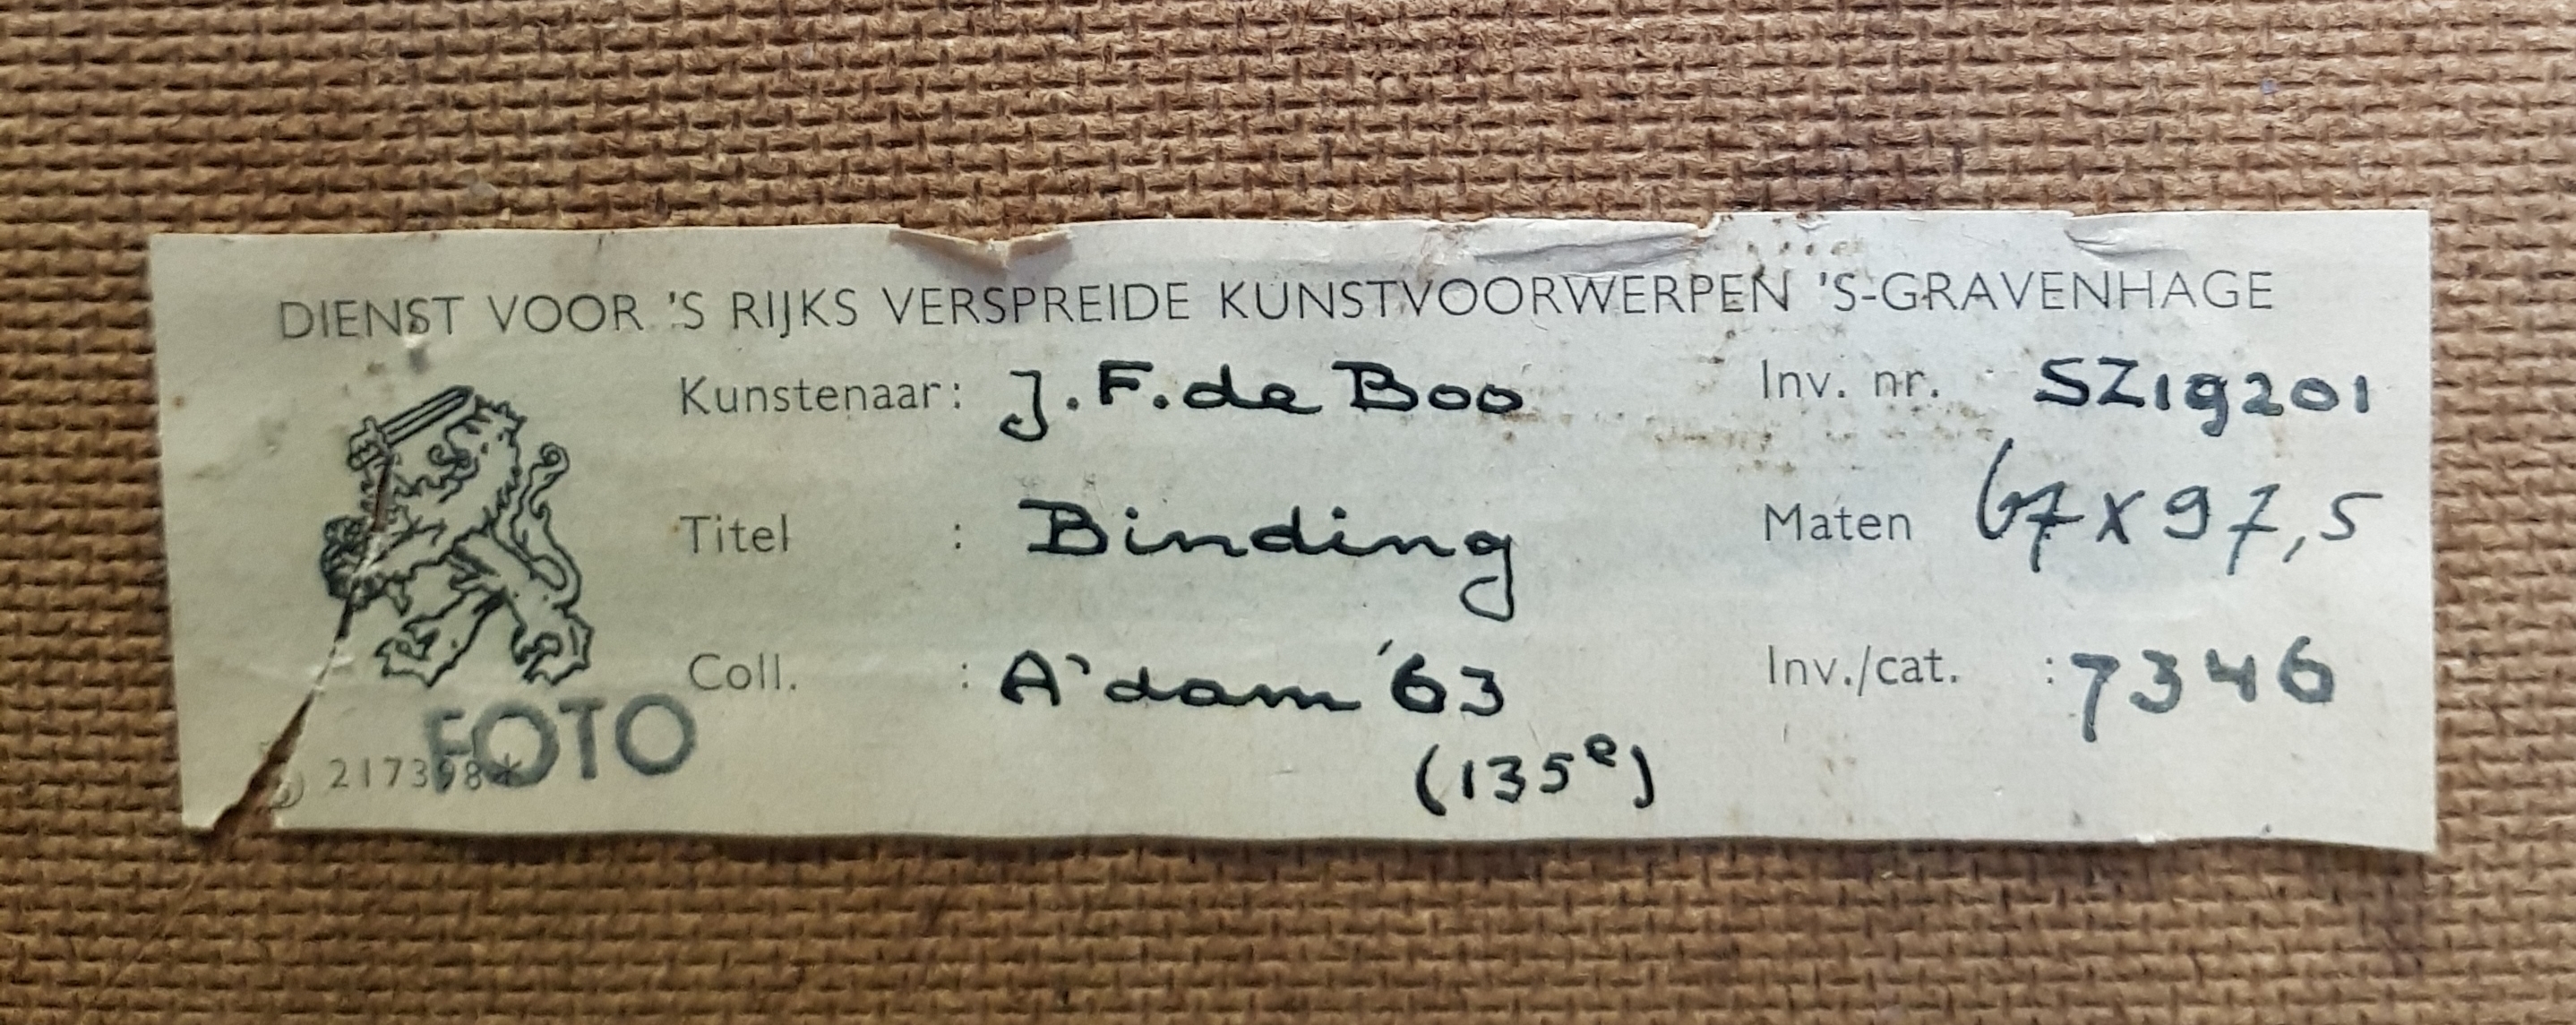 DIENST VOOR 'S RIJKS VERSPREIDE KUNSTVOORWERPEN 'S-GRAVENHAGE
Kunstenaar: J.F. de Boo Inv. nr. : SZ19201
Titel : Binding Maten 67 x 97,5
Coll. : A'dam '63 Inv./cat. : 7346
(135e)
FOTO
217398*